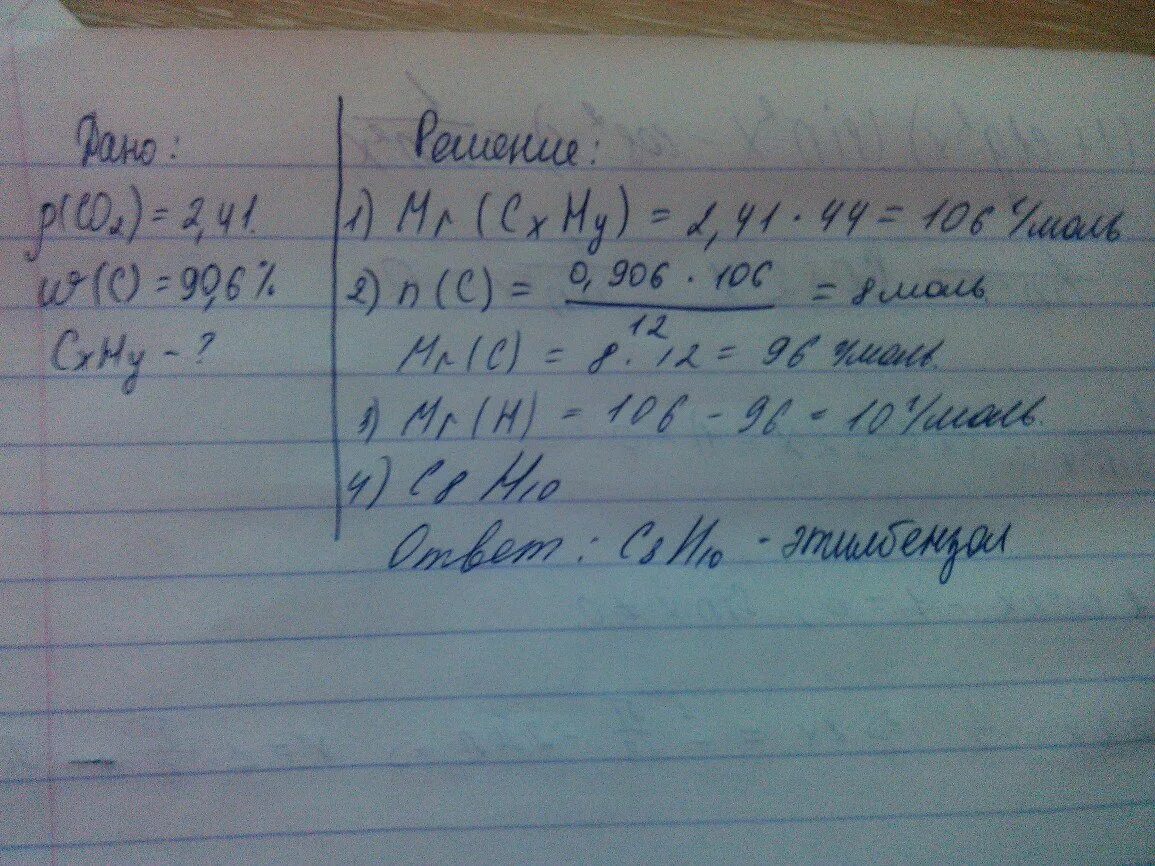 Дано:
р(CO₂) = 2,41.
w(C) = 90,6%
CxHy - ?
Решение:
1) Mr (CxHy) = 2,41 · 44 = 106 г/моль
2) n (C) = 0,906 · 106 / 12 = 8 моль
Mr (C) = 8 · 12 = 96 г/моль.
3) Mr (H) = 106 - 96 = 10 г/моль.
4) C8 H10
Ответ: C8H10 - этилбензол